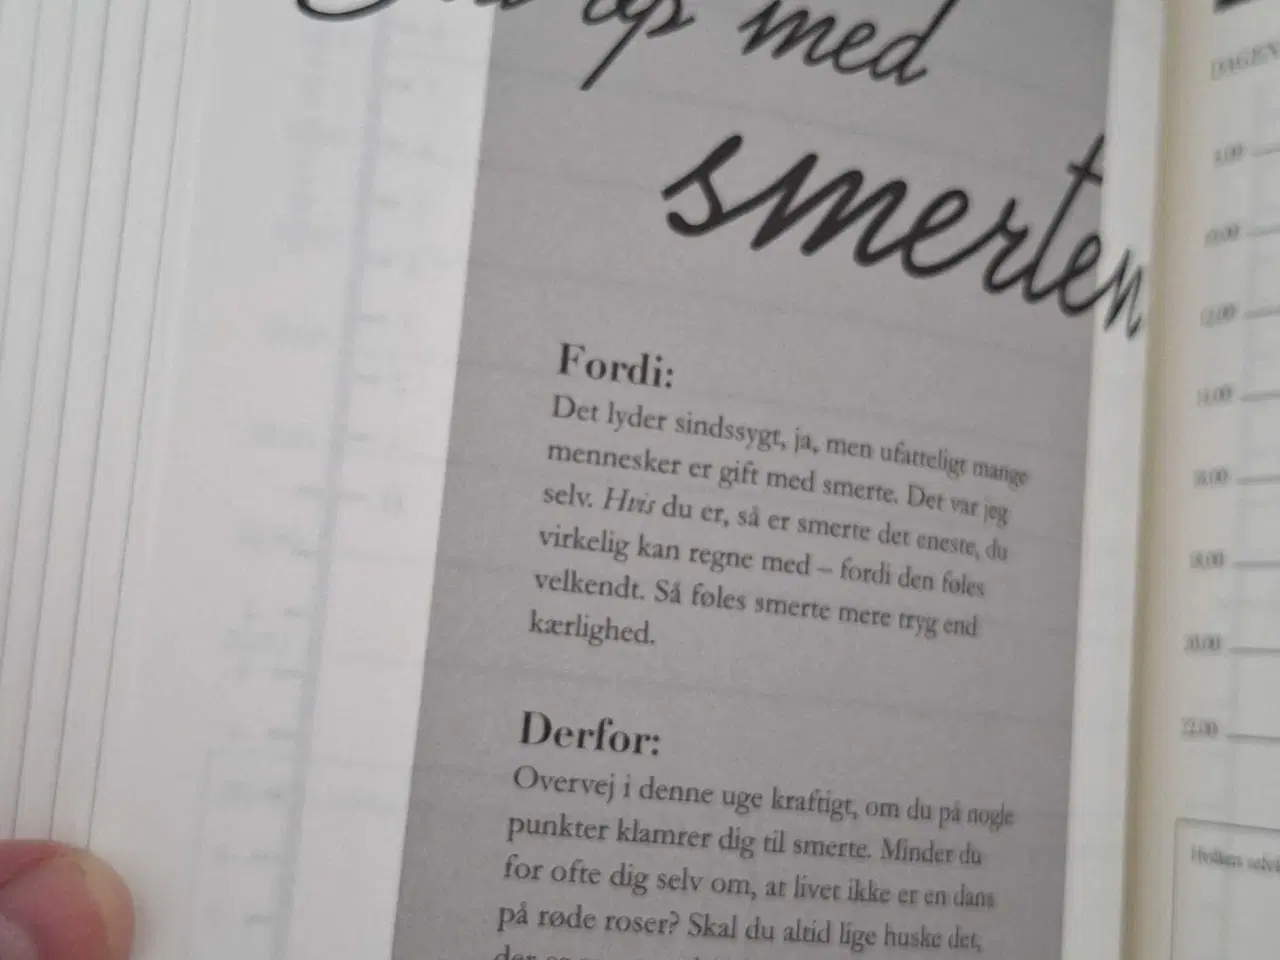 op med
smerten
Fordi:
Det lyder sindssygt, ja, men ufatteligt mange
mennesker er gift med smerte. Det var jeg
selv. Hvis du er, så er smerte det eneste, du
virkelig kan regne med – fordi den føles
velkendt. Så føles smerte mere tryg end
kærlighed.
Derfor:
Overvej i denne uge kraftigt, om du på nogle
punkter klamrer dig til smerte. Minder du
for ofte dig selv om, at livet ikke er en dans
på røde roser? Skal du altid lige huske det,
DAGEN
8.00
10.00
12.00
14.00
16.00
18.00
20.00
22.00